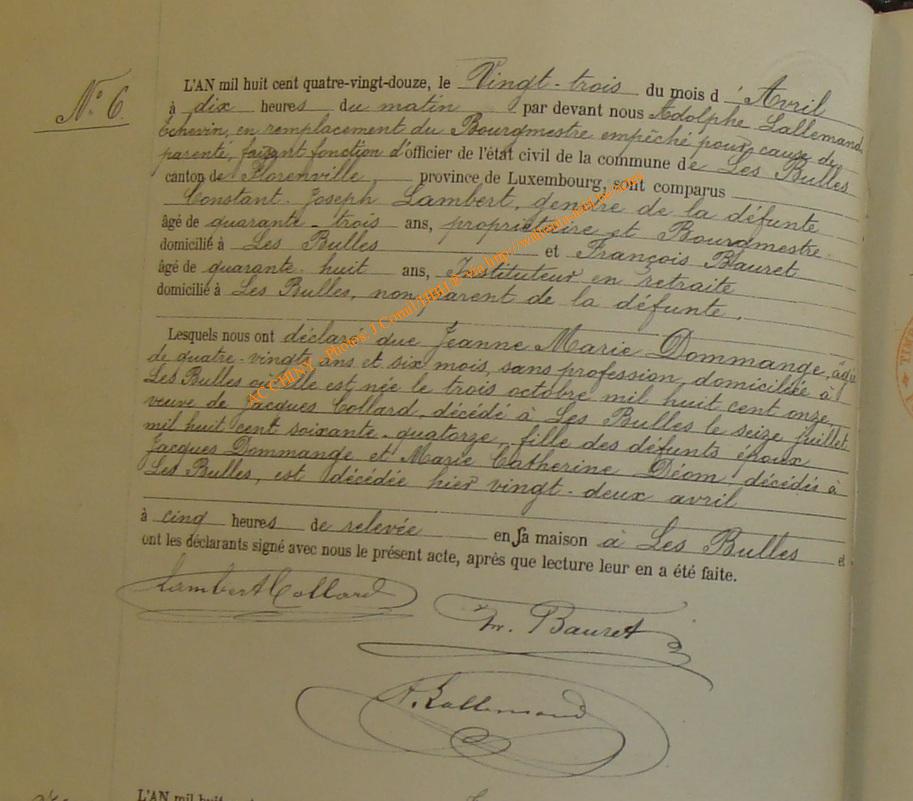 N° 6.
L'AN mil huit cent quatre-vingt-douze, le Vingt-trois du mois d'Avril
à dix heures du matin par devant nous Adolphe Lallemand
Echevin, en remplacement du Bourgmestre empêché pour cause de
parenté, faisant fonction d'officier de l'état civil de la commune de Les Bulles
canton de Florenville, province de Luxembourg, sont comparus
Constant Joseph Lambert, gendre de la défunte
âgé de quarante-trois ans, propriétaire et Bourgmestre
domicilié à Les Bulles et François Bauret
âgé de quarante huit ans, Instituteur en retraite
domicilié à Les Bulles, non parent de la défunte.
Lesquels nous ont déclaré que Jeanne Marie Dommange, âgée
de quatre-vingts ans et six mois, sans profession, domiciliée à
Les Bulles où elle est née le trois octobre mil huit cent onze,
veuve de Jacques Collard, décédé à Les Bulles le seize juillet
mil huit cent soixante-quatorze, fille des défunts époux
Jacques Dommange et Marie Catherine Déom, décédés à
Les Bulles, est décédée hier vingt-deux avril
à cinq heures de relevée en sa maison à Les Bulles et
ont les déclarants signé avec nous le présent acte, après que lecture leur en a été faite.
Lambert Collard
Fr. Bauret
A. Lallemand
L'AN mil huit